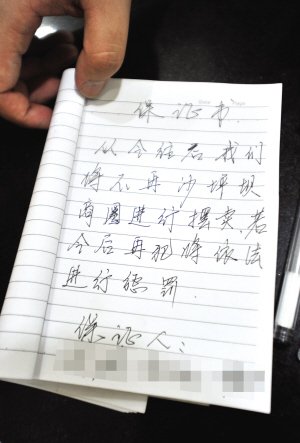 保证书
从今往后我们
将不再沙坪坝
商圈进行摆卖,若
今后再犯将依法
进行惩罚.
保证人: